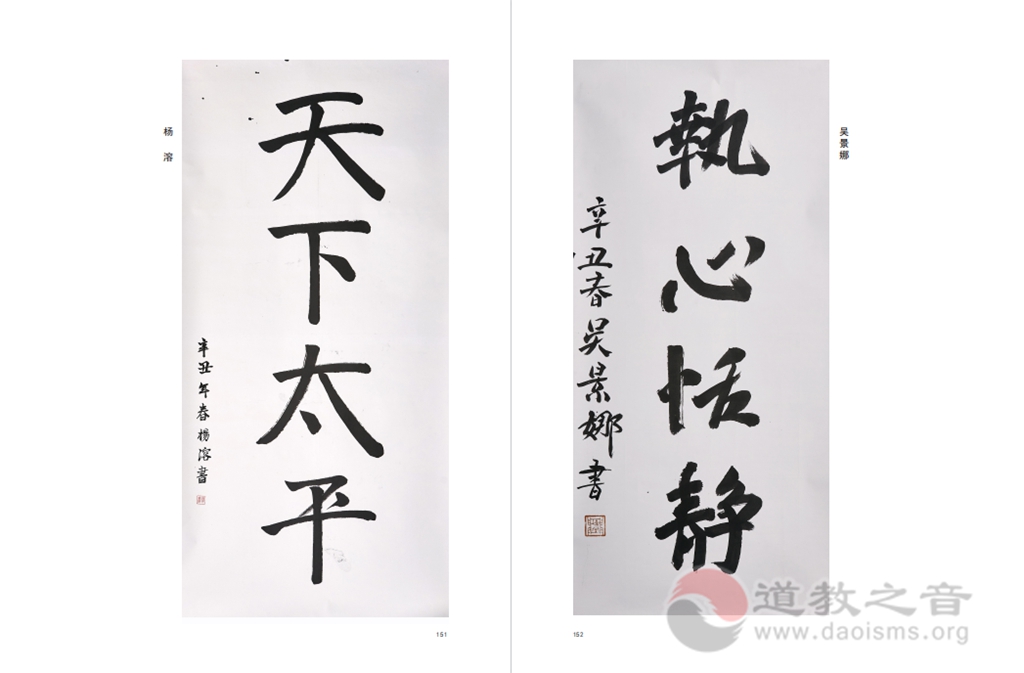 杨溶
天下太平
辛丑年春杨溶書
151
執心恬静
辛丑春吴景娜書
吴景娜
152
道教之音
www.daoisms.org